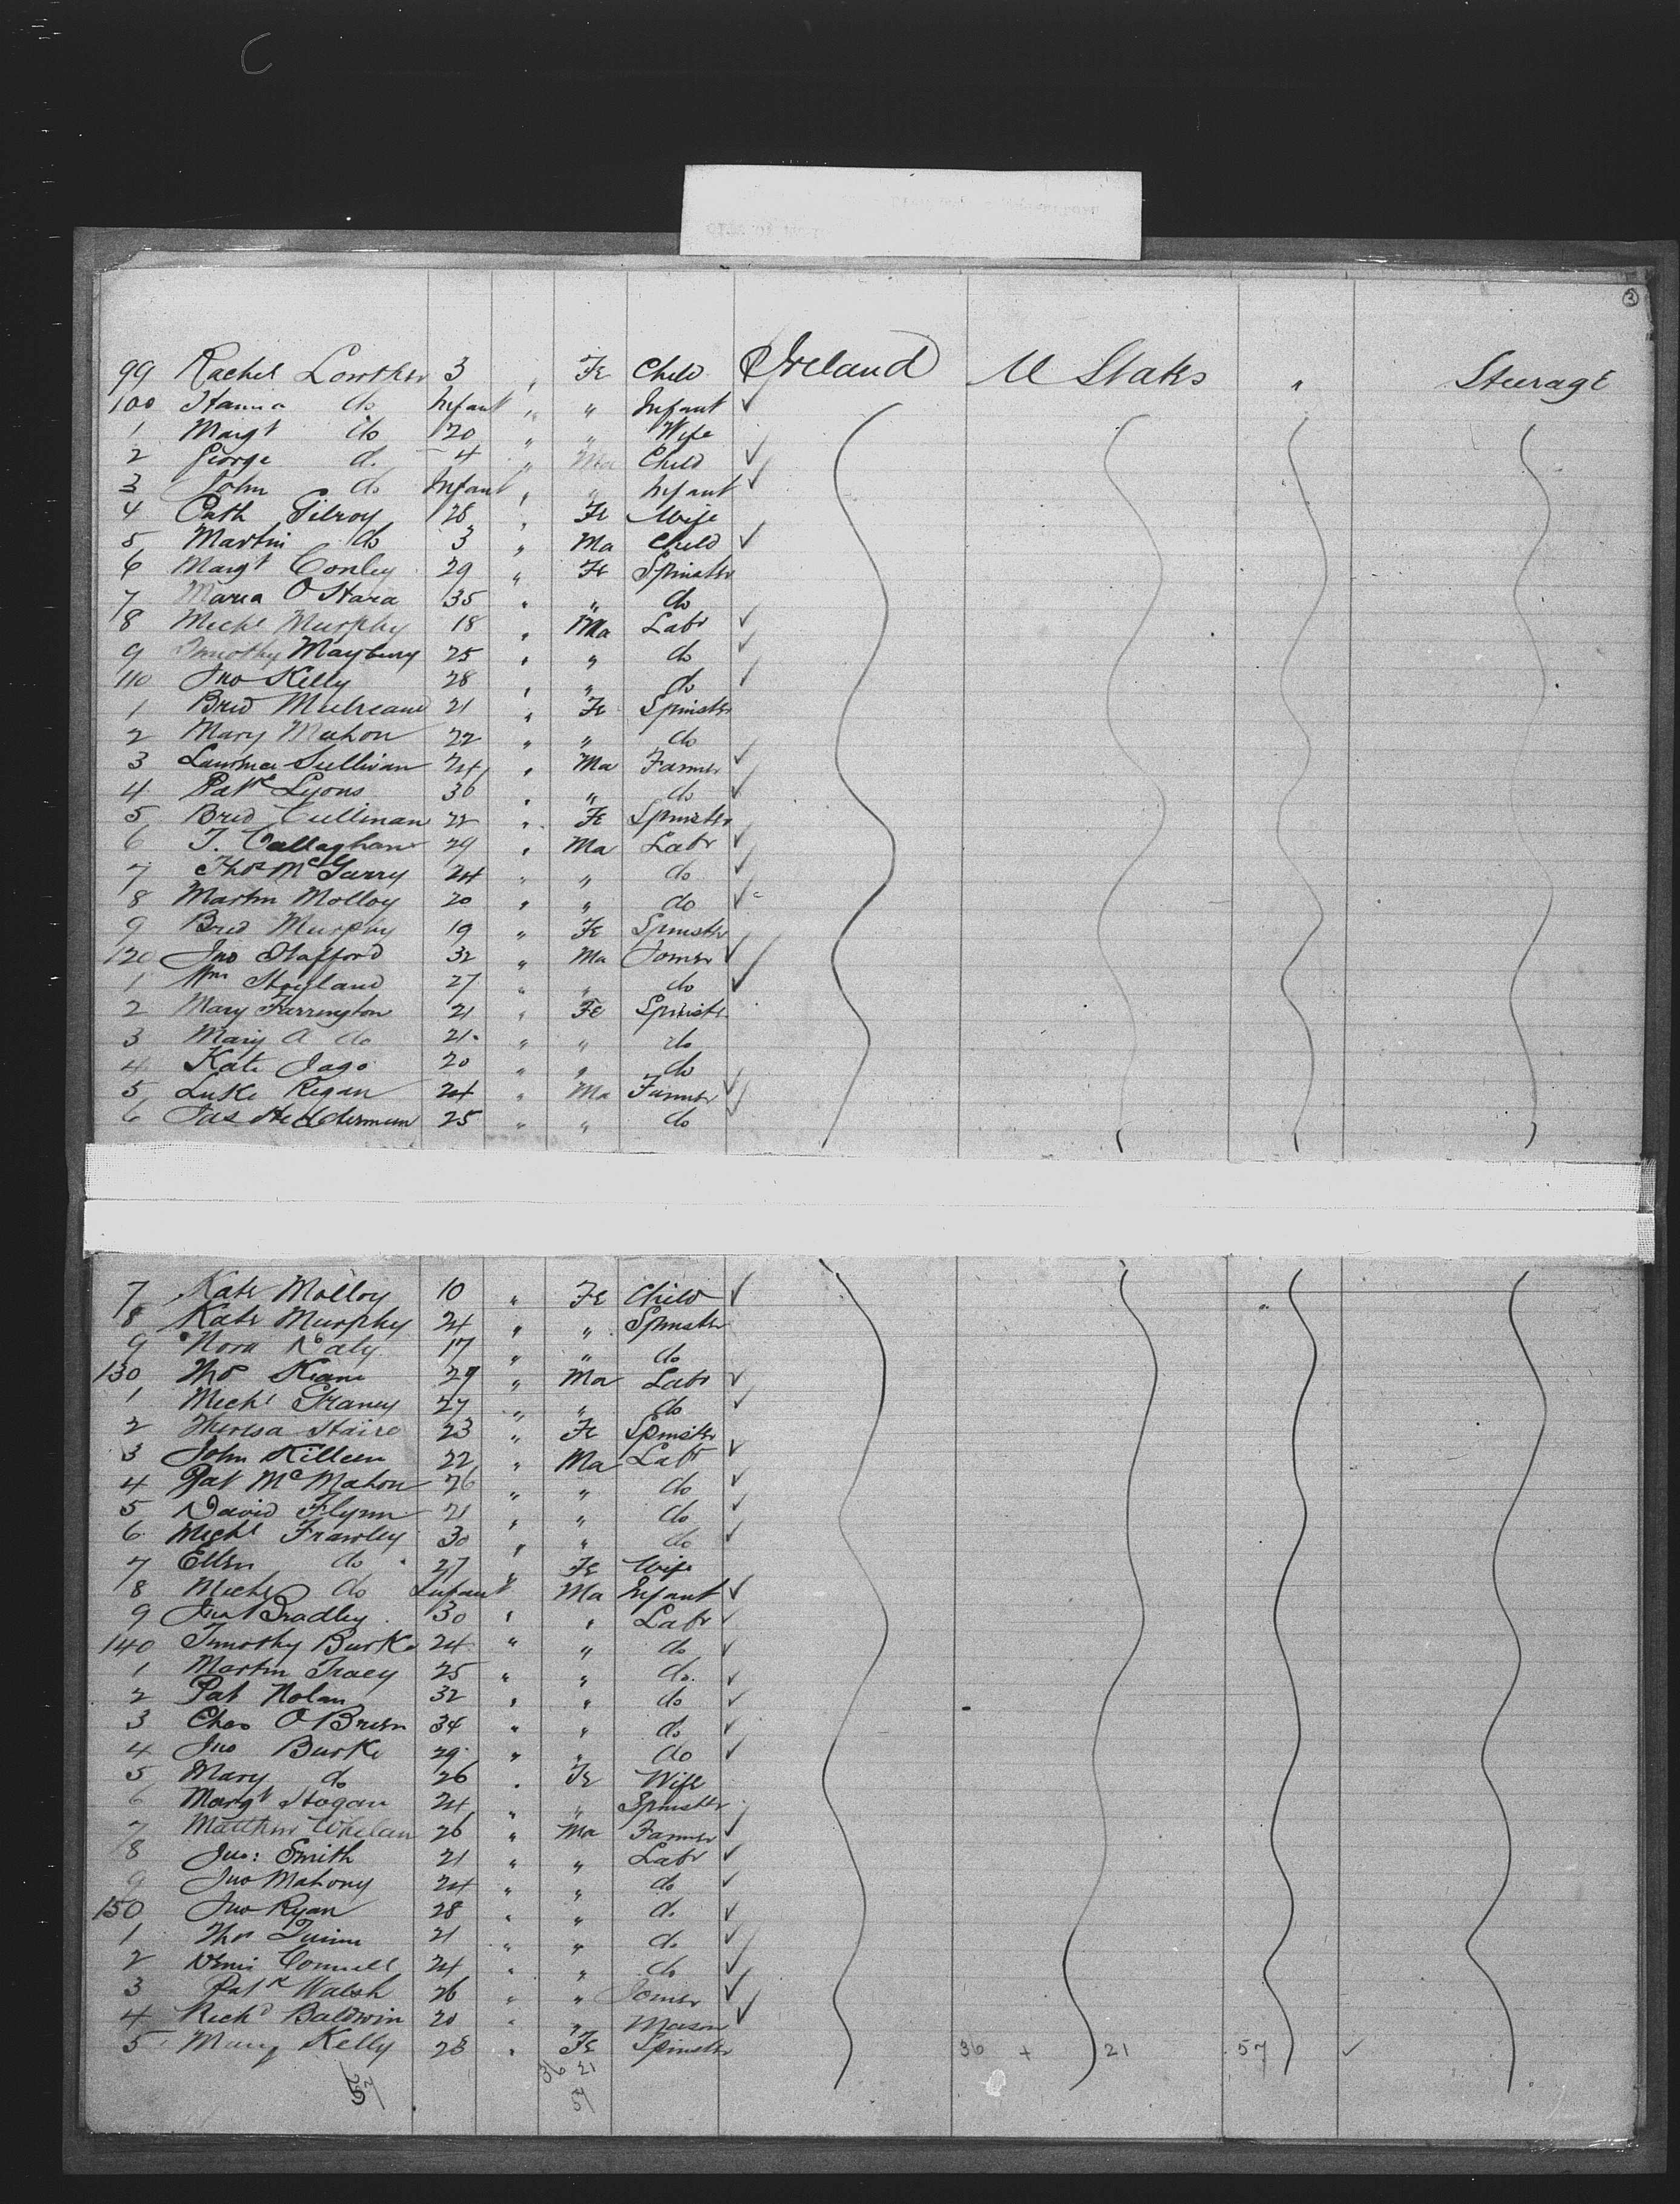 C
3
99 Rachel Lowther 3 " Fe Child Ireland U States " Steerage
100 Hanna do Infant " " Infant ✓
1 Margt do 20 " " Wife
2 George do 4 " Ma Child ✓
3 John do Infant " " Infant ✓
4 Cath Gilroy 28 " Fe Wife
5 Martin do 3 " Ma Child ✓
6 Margt Conley 29 " Fe Spinster
7 Maria O'Hara 35 " " do
8 Michl Murphy 18 " Ma Labr ✓
9 Timothy Maybury 25 " " do ✓
110 Jno Kelly 28 " " do ✓
1 Brid 21 " Fe Spinster
2 Mary Mahon 22 " " do
3 Lawrence Sullivan 24 " Ma Farmer ✓
4 Patk Lyons 36 " " do ✓
5 Brid Cullinan 22 " Fe Spinster
6 T. Callaghan 29 " Ma Labr ✓
7 Thos McGarry 24 " " do ✓
8 Martin Molloy 20 " " do ✓
9 Brid Murphy 19 " Fe Spinster
120 Jno Stafford 32 " Ma Joiner ✓
1 Wm Hoyland 27 " " do ✓
2 Mary Farrington 21 " Fe Spinster
3 Mary A do 21 " " do
4 Kate Jago 20 " " do
5 Luke Regan 24 " Ma Farmer ✓
6 Jas Hedderman 25 " " do ✓
7 Kate Molloy 10 " Fe Child ✓
8 Kate Murphy 24 " " Spinster
9 Nora Daly 17 " " do
130 Thos Keane 29 " Ma Labr ✓
1 Michl Graney 27 " " do ✓
2 Theresa Haire 23 " Fe Spinster
3 John Killeen 22 " Ma Labr ✓
4 Pat McMahon 26 " " do ✓
5 David Flynn 21 " " do ✓
6 Michl Frawley 30 " " do ✓
7 Ellen do 27 " Fe Wife
8 Michl do Infant " Ma Infant ✓
9 Jno Bradley 30 " " Labr ✓
140 Timothy Burke 24 " " do ✓
1 Martin Tracy 25 " " do ✓
2 Pat Nolan 32 " " do ✓
3 Chas O'Brien 34 " " do ✓
4 Jno Burke 29 " " do ✓
5 Mary do 26 " Fe Wife
6 Margt Hogan 24 " " Spinster
7 Matthew Whelan 26 " Ma Farmer ✓
8 Jno: Smith 21 " " Labr ✓
9 Jno Mahony 24 " " do ✓
150 Jno Ryan 28 " " do ✓
1 Thos Quinn 21 " " do ✓
2 Denis Connell 24 " " do ✓
3 Patk Walsh 26 " " Joiner ✓
4 Richd Baldwin 20 " " Mason ✓
5 Mary Kelly 28 " Fe Spinster 36 + 21 57 ✓
36 21
57